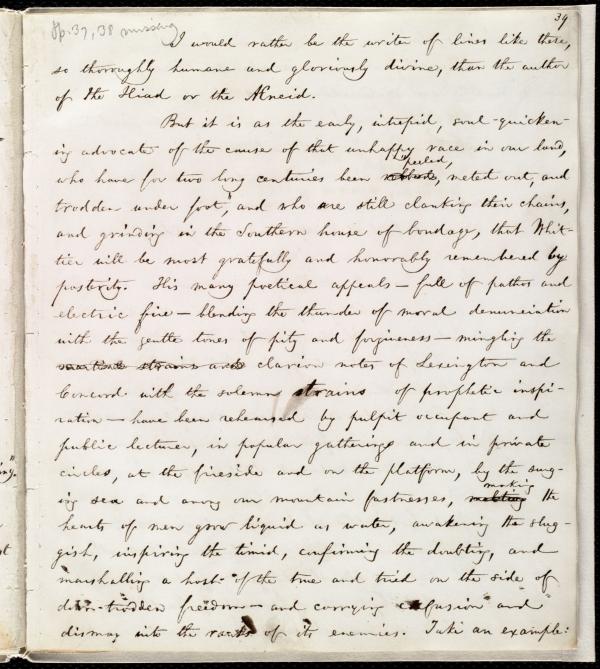 pp. 37, 38 missing
39
I would rather be the writer of lines like these,
so thoroughly humane and gloriously divine, than the author
of the Iliad or the Æneid.
But it is as the early, intrepid, soul-quicken-
ing advocate of the cause of that unhappy race in our land,
who have for two long centuries been robbed, "peeled, meted out, and
trodden under foot," and who are still clanking their chains,
and grinding in the Southern house of bondage, that Whit-
tier will be most gratefully and honorably remembered by
posterity. His many poetical appeals — full of pathos and
electric fire — blending the thunder of moral denunciation
with the gentle tones of pity and forgiveness — mingling the
martial strains and clarion notes of Lexington and
Concord with the solemn strains of prophetic inspi-
ration — have been rehearsed by pulpit occupant and
public lecturer, in popular gatherings and in private
circles, at the fireside and on the platform, by the surg-
ing sea and among our mountain fastnesses, melting making the
hearts of men grow liquid as water, awakening the slug-
gish, inspiring the timid, confirming the doubting, and
marshalling a host of the true and tried on the side of
down-trodden freedom — and carrying confusion and
dismay into the ranks of its enemies. Take an example: